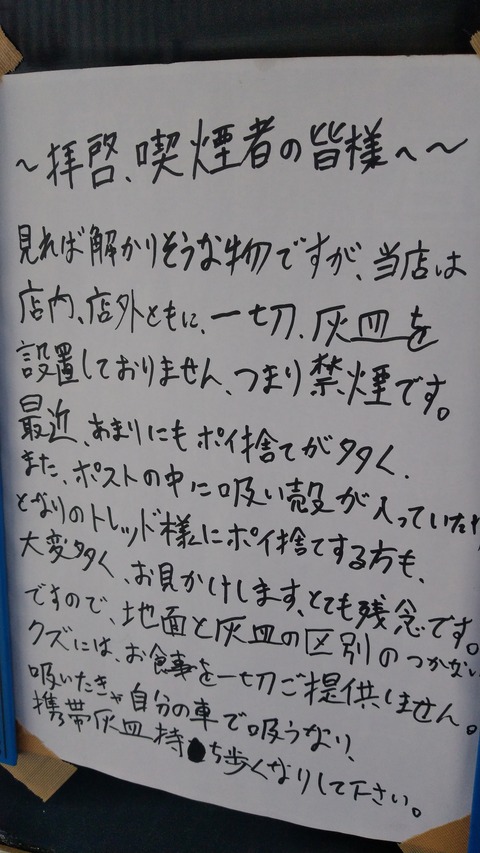 ～拝啓、喫煙者の皆様へ～
見れば解かりそうな物ですが、当店は
店内、店外ともに、一切、灰皿を
設置しておりません、つまり禁煙です。
最近、あまりにもポイ捨てが多く、
また、ポストの中に吸い殻が入っていたり
となりのトレッド様にポイ捨てする方も、
大変多く、お見かけします、とても残念です。
ですので、地面と灰皿の区別のつかない
クズには、お食事を一切ご提供しません。
吸いたきゃ自分の車で吸うなり、
携帯灰皿持ち歩くなりして下さい。